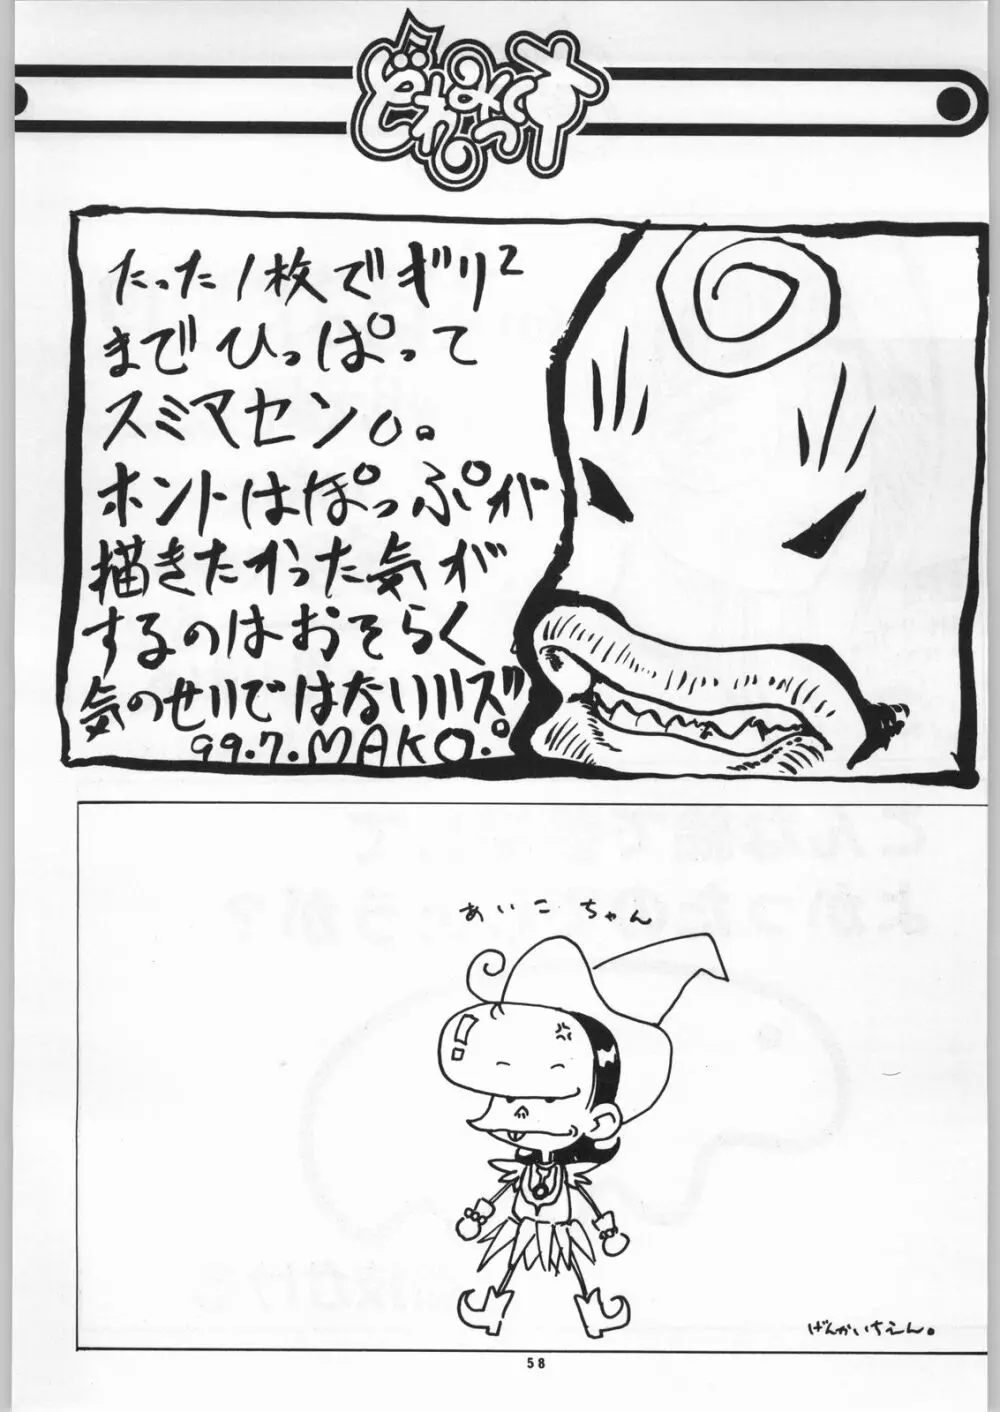 どれみっす
たった1枚でギリ2
までひっぱって
スミマセン。。
ホントはぽっぷが
描きたかった気が
するのはおそらく
気のせいではないハズ。
99.7.MAKO.
あいこちゃん
げんかいちえん。
58